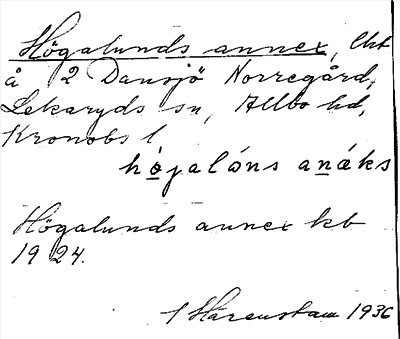 Högalunds annex, lht
å 2 Dansjö Norregård,
Lekaryds sn, Allbo hd,
Kronobs l
hö̱jalɷns anä̱ks
Högalunds annex kb
1924.
Harenstam 1936